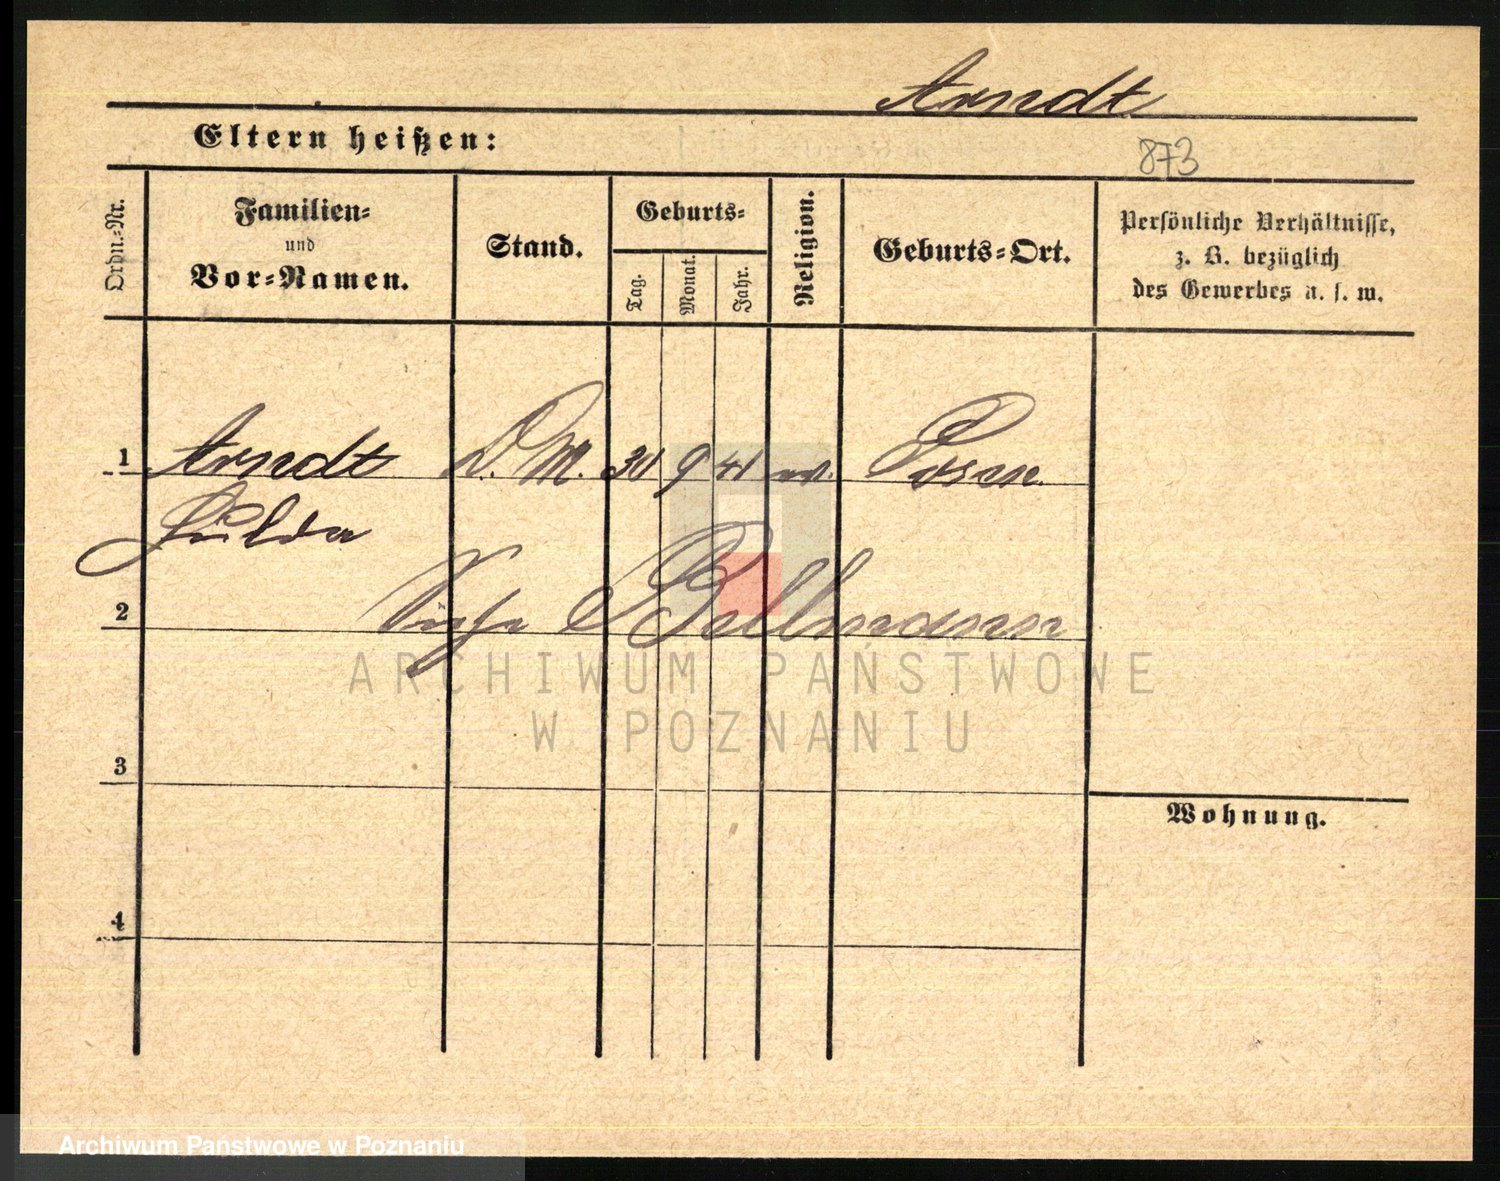 Arndt
Eltern heißen:
873
Ordn.-Nr.
Familien-
und
Vor-Namen.
Stand.
Geburts-
Tag.
Monat.
Jahr.
Religion.
Geburts-Ort.
Persönliche Verhältnisse,
z. B. bezüglich
des Gewerbes u. s. w.
1 Arndt D. M. 30 9 41 ev. Posen
Hulda
2 Siehe Bellmann
ARCHIWUM PAŃSTWOWE
W POZNANIU
3
Wohnung.
4
Archiwum Państwowe w Poznaniu